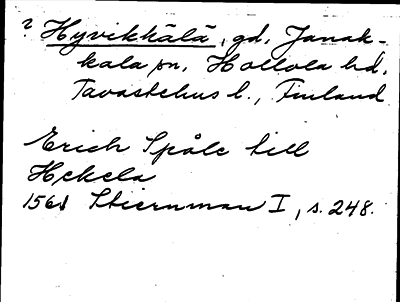 ? Hyvikkälä, gd, Janak-
kala sn, Hollola hd,
Tavastehus l., Finland
Erich Spåle till
Hekela
1561 Stiernman I, s. 248.